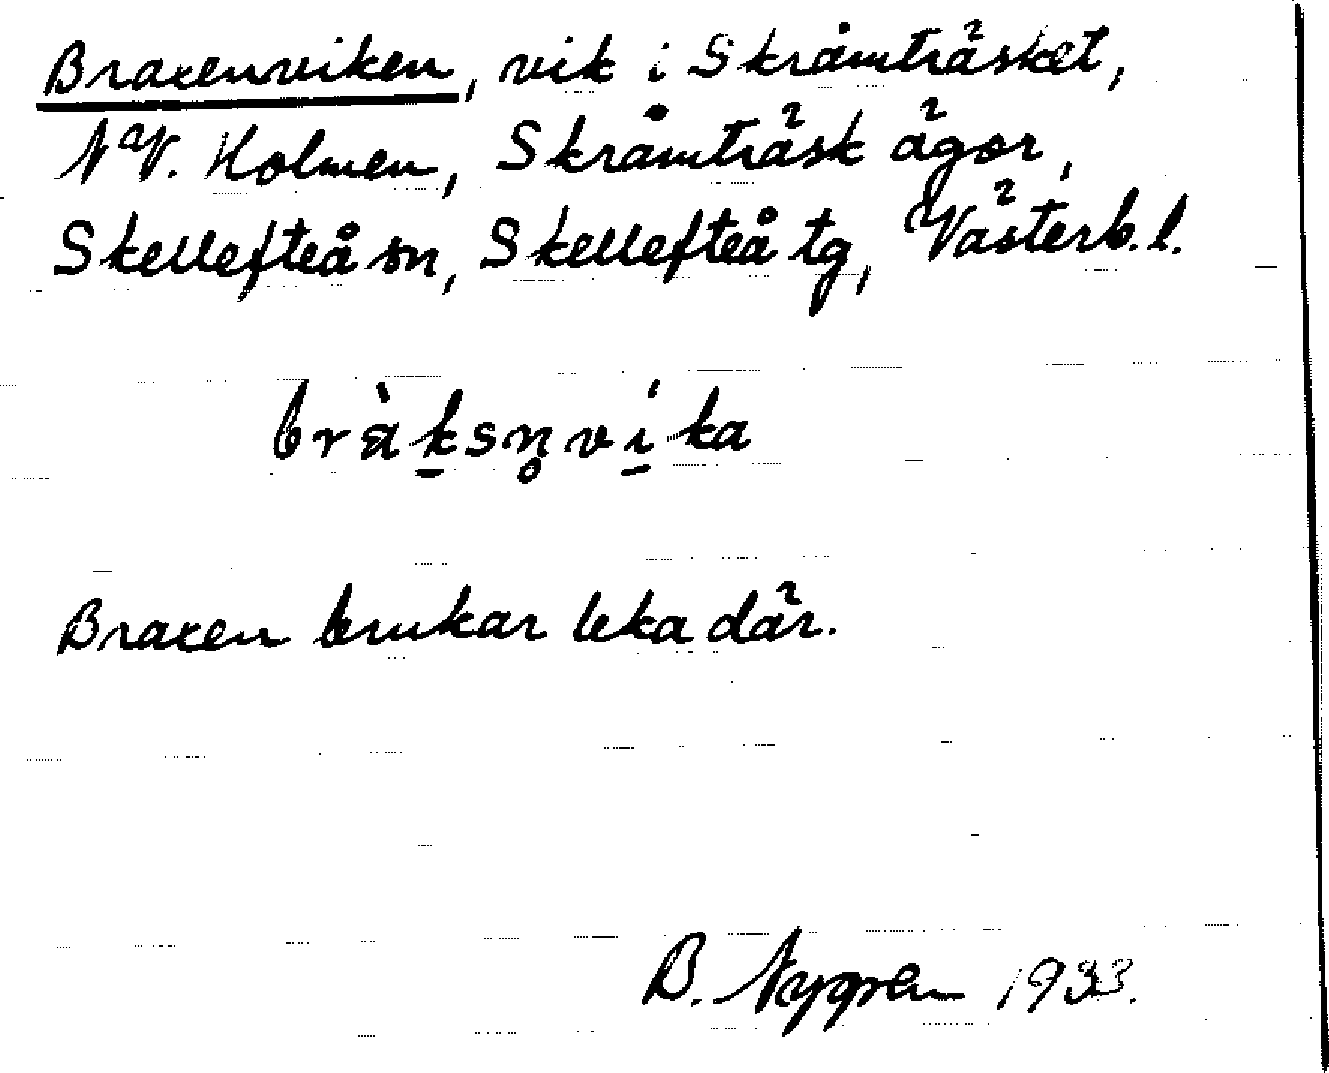 Braxenviken, vik i Skråmträsket,
N a V. Holmen, Skråmträsk ägor,
Skellefteå sn, Skellefteå tg, Västerb. l.
bràk̠sn̥ví̠ka
Braxen brukar leka där.
B. Nygren 1933.